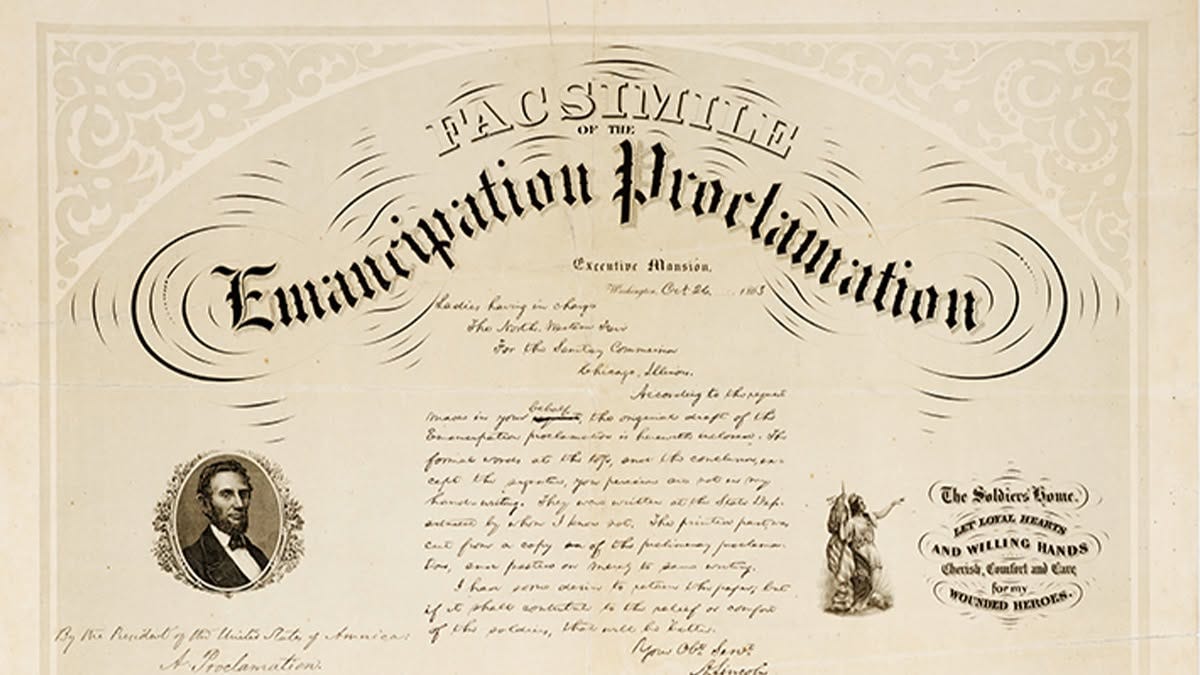 FACSIMILE
OF THE
Emancipation Proclamation
Executive Mansion,
Washington, Oct. 26, 1863
Ladies having in charge
The North Western Fair
For the Sanitary Commission
Chicago, Illinois.
According to the request
made in your behalf, the original draft of the
Emancipation proclamation is herewith enclosed. The
formal words at the top, and the conclusion, ex-
cept the signature, you perceive, are not in my
hand-writing. They were written at the State Dep-
artment by whom I know not. The printed part was
cut from a copy of the preliminary proclama-
tion, and pasted on merely to save writing.
I had some desire to retain the paper, but
if it shall contribute to the relief or comfort
of the soldiers, that will be better.
Your Obt. Servt.
A. Lincoln
The Soldiers' Home.
LET LOYAL HEARTS
AND WILLING HANDS
Cherish, Comfort and Care
for my
WOUNDED HEROES.
By the President of the United States of America:
A Proclamation.